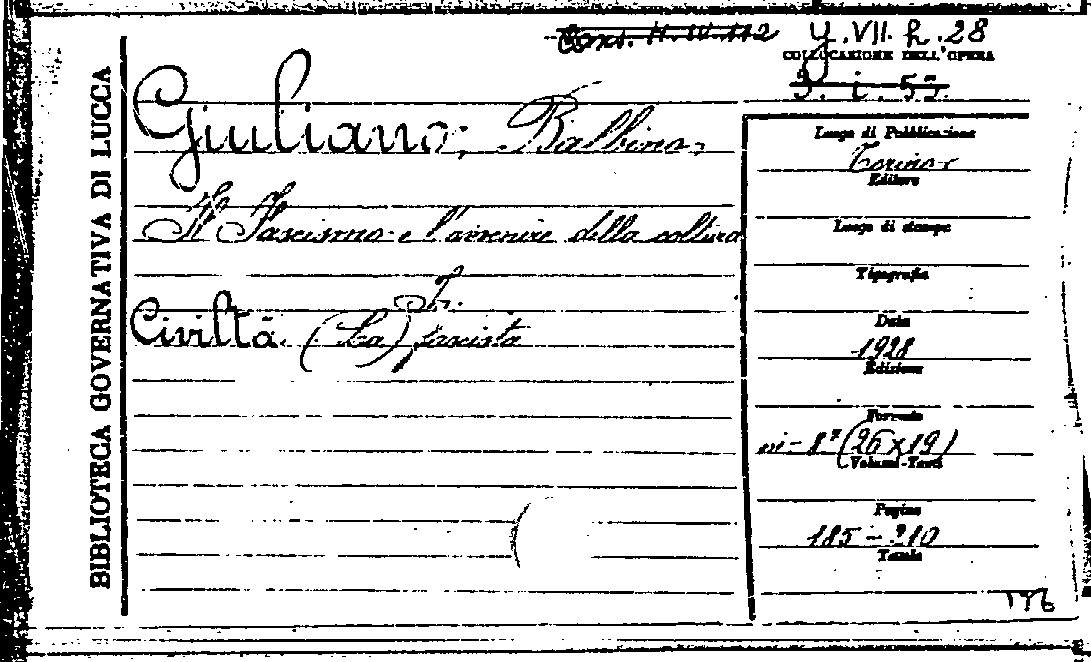 BIBLIOTECA GOVERNATIVA DI LUCCA
Y.VII.h.28
COLLOCAZIONE DELL'OPERA
Giuliano, Balbino,
Il Fascismo e l'avvenire della coltura
F.
Civiltà (La) fascista
Luogo di Pubblicazione
Torino
Editore
Luogo di stampa
Tipografia
Data
1928
Edizione
Formato
in-8° (26x19)
Volumi-Tomi
Pagine
185-210
Tavole